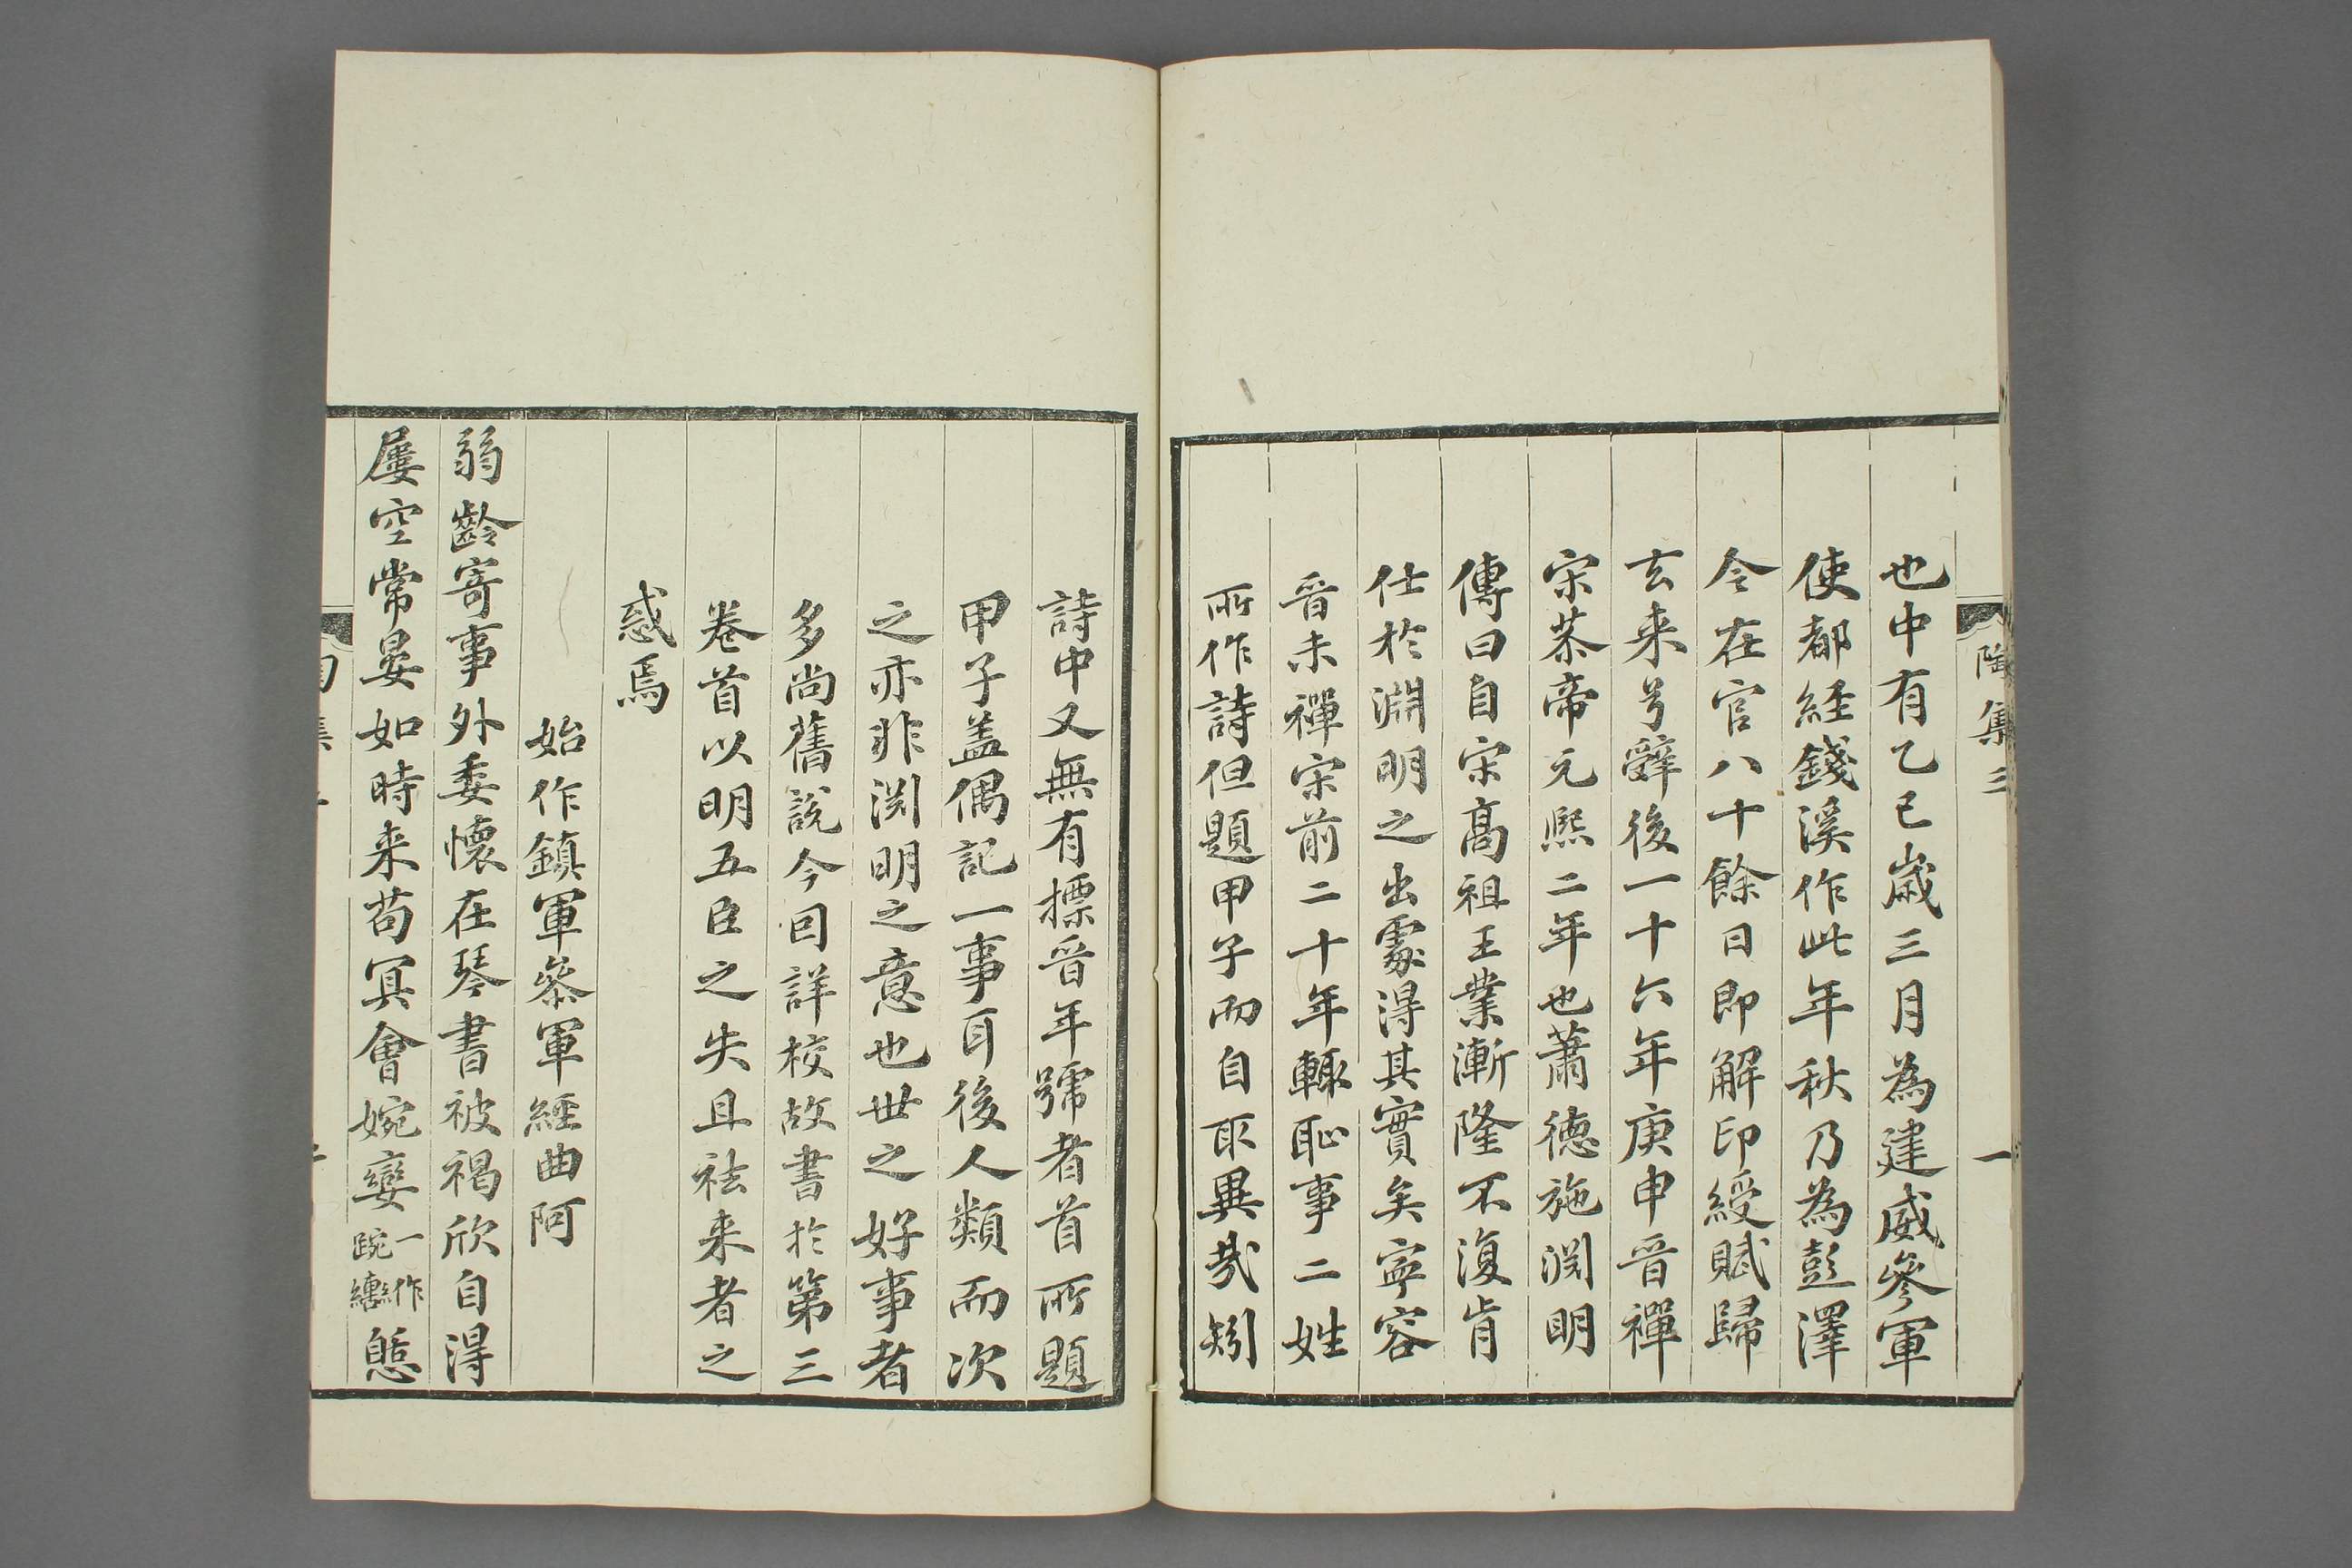 陶集三
一
也中有乙巳歲三月為建威參軍
使都經錢溪作此年秋乃為彭澤
令在官八十餘日即解印綬賦歸
玄来兮辭後一十六年庚申晉禪
宋恭帝元熙二年也蕭德施渊明
傳曰自宋髙祖王業漸隆不復肯
仕於淵明之出處得其實矣寜容
晉未禪宋前二十年輒恥事二姓
所作詩但題甲子而自取異㢤矧
詩中又無有摽晉年號者首所題
甲子盖偶記一事耳後人類而次
之亦非渊明之意也世之好事者
多尚舊說今因詳校故書於第三
卷首以明五臣之失且袪来者之
惑焉
始作鎮軍叅軍經曲阿
弱齡寄事外委懷在琴書被褐欣自得
屢空常晏如時来苟冥會婉孌一作踠轡憇